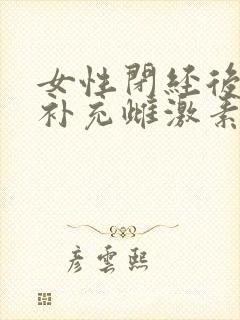 女性閉経後
补充雌激素
彦雲熙